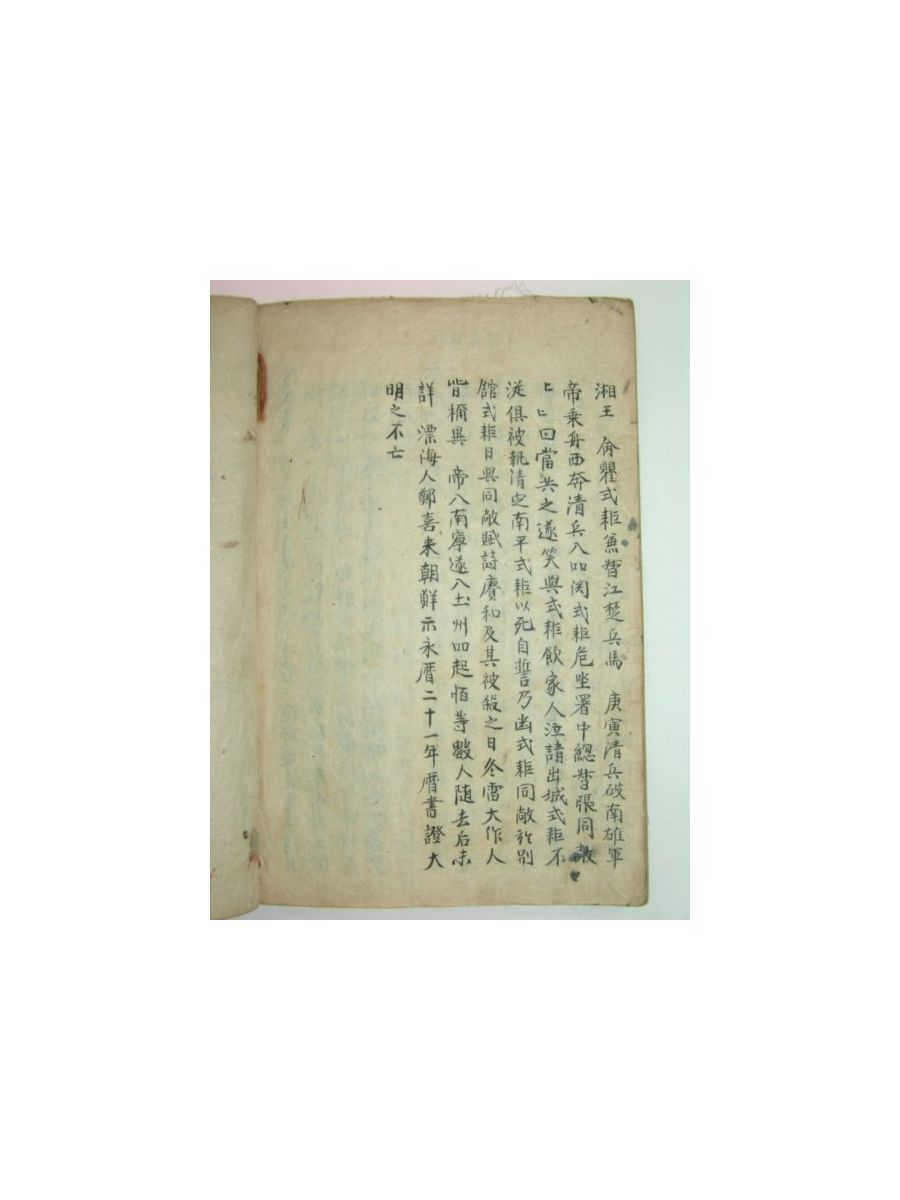 湘王 命瞿式耜兼督江楚兵馬 庚寅清兵破南雄軍
帝乘舟西奔清兵入関式耜危坐署中總督張同敞
曰當共之遂笑與式耜飲家人泣請出城式耜不
從俱被執清定南平式耜以死自誓乃幽式耜同敞於別
館式耜日與同敞賦詩賡和及其被殺之日冬雷大作人
皆稱異 帝入南寧遂入土州起恒等數人随去后未
詳 漂海人鄭喜来朝鮮示永曆二十一年曆書證大
明之不亡